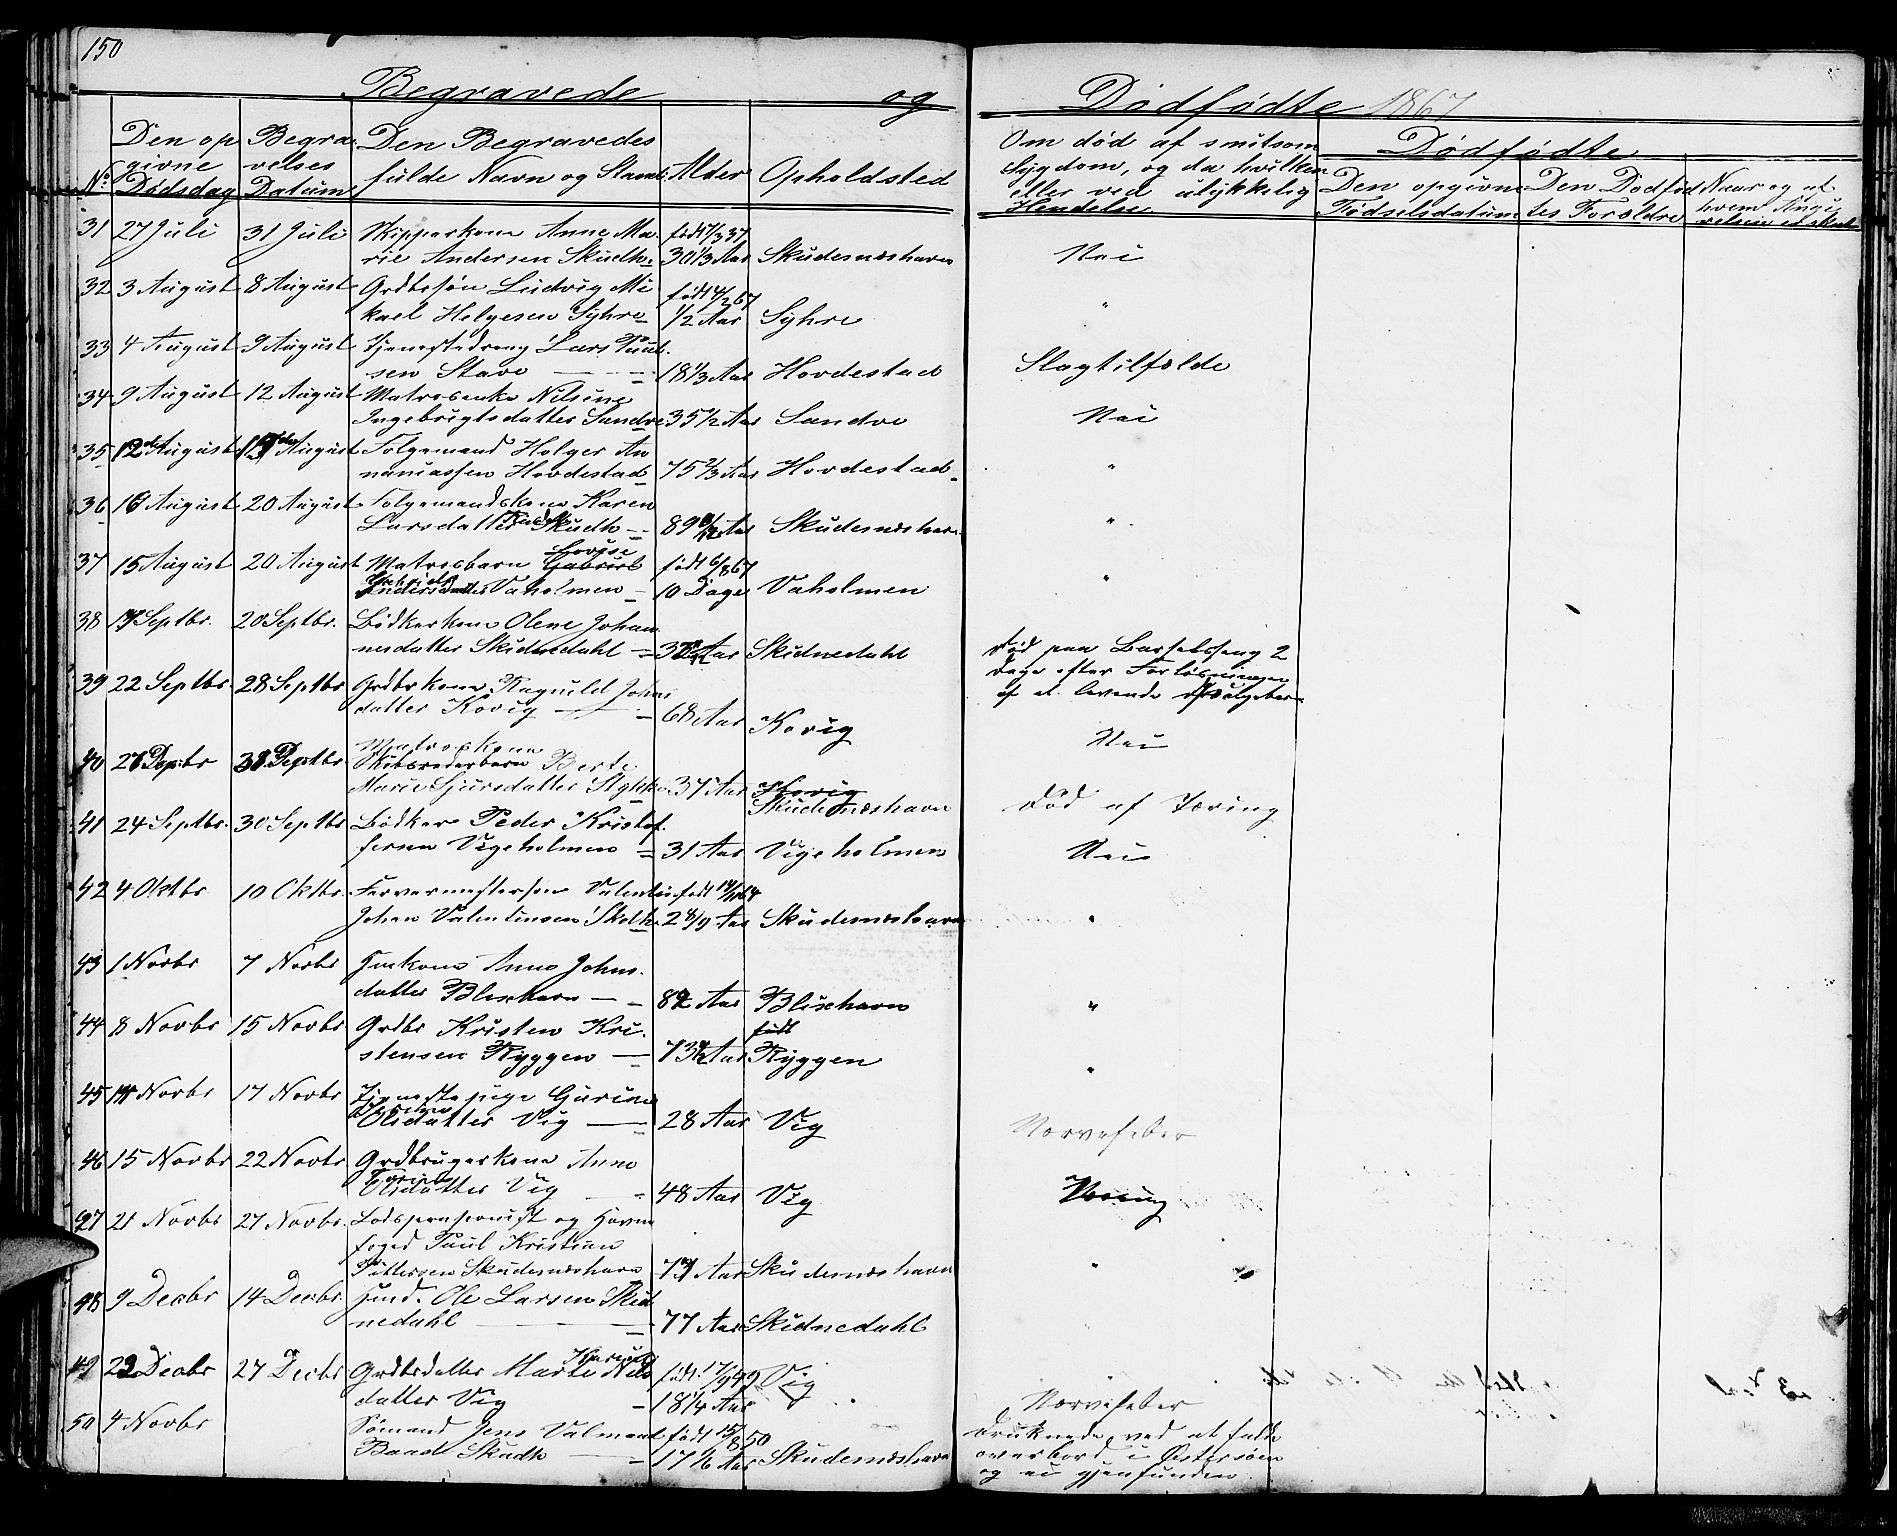 150
Begravede og Dødfødte 1867
No
Den op
givne
Dødsdag
Begra
velses
Datum
Den Begravedes
fulde Navn og Stand
Alder
Opholdsted
Om død af smitsom
Sygdom, og da hvilken
eller ved ulykkelig
Hendelse
Dødfødte
Den opgivne
Fødselsdatum
Den Dødfød
tes Forældre
Naar og af
hvem
31 27 Juli 31 Juli Skipperkone Anne Ma-
rie Andersen Skudh. født 7/3 37 30 1/3 Aar Skudesneshavn Nei
32 3 August 8 August Grdbrsøn Ludvig Mi
kael Helgesen Syhre født 4/2 67 1/2 Aar Syhre "
33 4 August 9 August Tjenestedreng Lars Paul-
sen Stave 18 1/3 Aar Hovdestad Slagtilfælde
34 9 August 12 August Matrosenke Nilsine
Ingebrigtsdatter Sandve 35 1/2 Aar Sandve Nei
35 12 August August Folgemand Holger An
naniassen Hovdestad 75 2/3 Aar Hovdestad "
36 16 August 20 August Folgemandskone Karen
Larsdatter Skudh 89 Aar Skudesneshavn "
37 15 August 20 August Matrosbarn Lovise Gabriel
Vaholmen født 6/8 67 10 Dage Vaholmen "
38 Septbr. 20 Septbr. Bødkerkone Olene Johan
nesdatter Skudnedahl Aar Skudnedahl Død paa Barselseng 2
Dage efter Forløsningen
af et levende
39 22 Septbr 28 Septbr Grdbrkone Ragnild Johns
datter Kovig 68 Aar Kovig Nei
40 Septbr Septbr. Matroskone
Skibsrederbarn Berte
Marie Sjursdatter 37 Aar Skudesneshavn Død af Tæring
41 24 Septbr. 30 Septbr Bødker Peder Kristof-
fersen Vigeholmen 31 Aar Vigeholmen Nei
42 4 Oktbr 10 Oktbr. Farvermestersøn Valentin
Johan Valentinsen Skdh. født 2 8/9 Aar Skudesneshavn "
43 1 Novbr 7 Novbr Anne Johns-
datter Blixhavn 82 Aar Blixhavn "
44 8 Novbr 15 Novbr Grdbr Kristen Kri-
stensen Ryggen 73 Aar Ryggen "
45 Novbr 17 Novbr Tjenestepige Gurine
Olsdatter Vig 28 Aar Vig Nervefeber
46 15 Novbr 22 Novbr Grdbrugerkone Anne
Olsdatter Vig 48 Aar Vig
47 21 Novbr 27 Novbr. Lodspensionist og Havne
foged Paul Kristian
Pettersen Skudesneshavn Aar Skudesneshavn "
48 9 Decbr 14 Decbr Inds. Ole Larsen Skud
nedahl 77 Aar Skudnedahl
49 22 Decbr 27 Decbr Grdbrdatter Marte Karine Nils
datter Vig født 17/9 49 18 1/4 Aar Vig Nervefeber
50 4 Novbr Sømand Jens Valmand
Baad Skudh født 15/8 50 17 1/6 Aar Skudesneshavn Druknede ved at falde
overbord i Østersøen
og ei gjenfunden